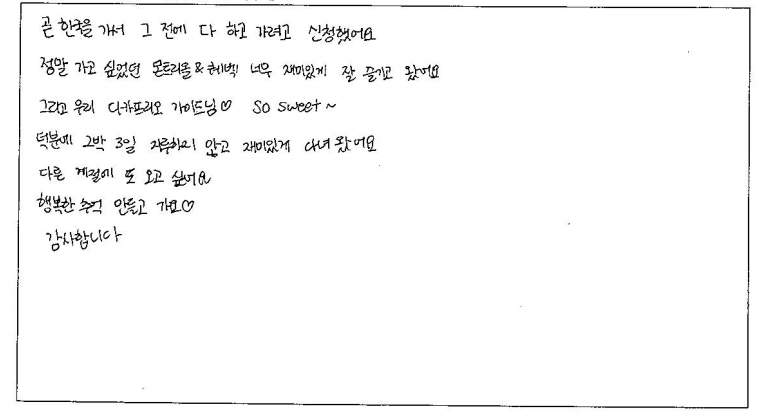 곧 한국을 가서 그 전에 다 하고 가려고 신청했어요
정말 가고 싶었던 몬트리올 & 퀘벡 너무 재미있게 잘 즐기고 왔어요
그리고 우리 디카프리오 가이드님♡ So sweet~
덕분에 2박 3일 지루하지 않고 재미있게 다녀 왔어요
다른 계절에 또 오고 싶어요
행복한 추억 만들고 가요♡
감사합니다